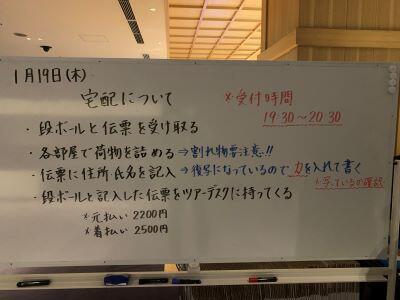 1月19日(木)
宅配について
※受付時間
19:30～20:30
・段ボールと伝票を受け取る
・各部屋で荷物を詰める⇒割れ物要注意!!
・伝票に住所氏名を記入⇒複写になっているので力を入れて書く
※写っているか確認
・段ボールと記入した伝票をツアーデスクに持ってくる
※元払い 2200円
※着払い 2500円